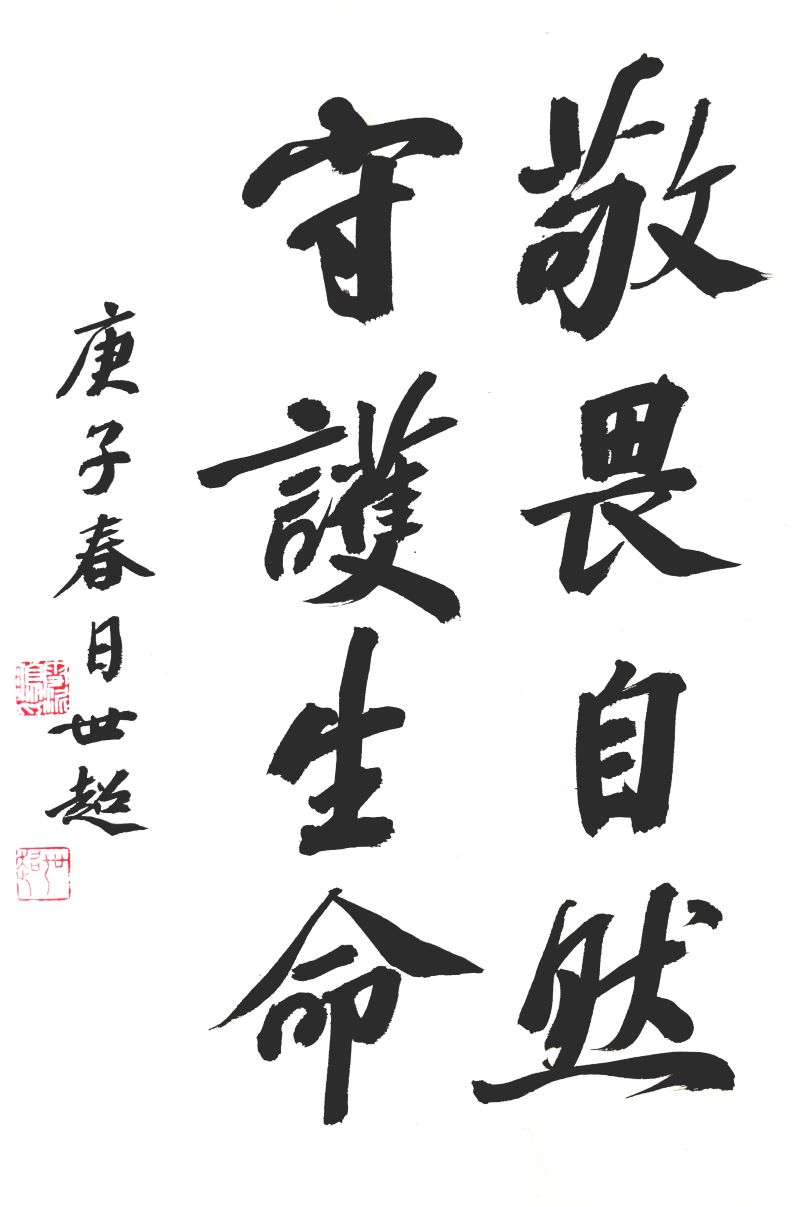 敬畏自然
守護生命
庚子春日世超
世超